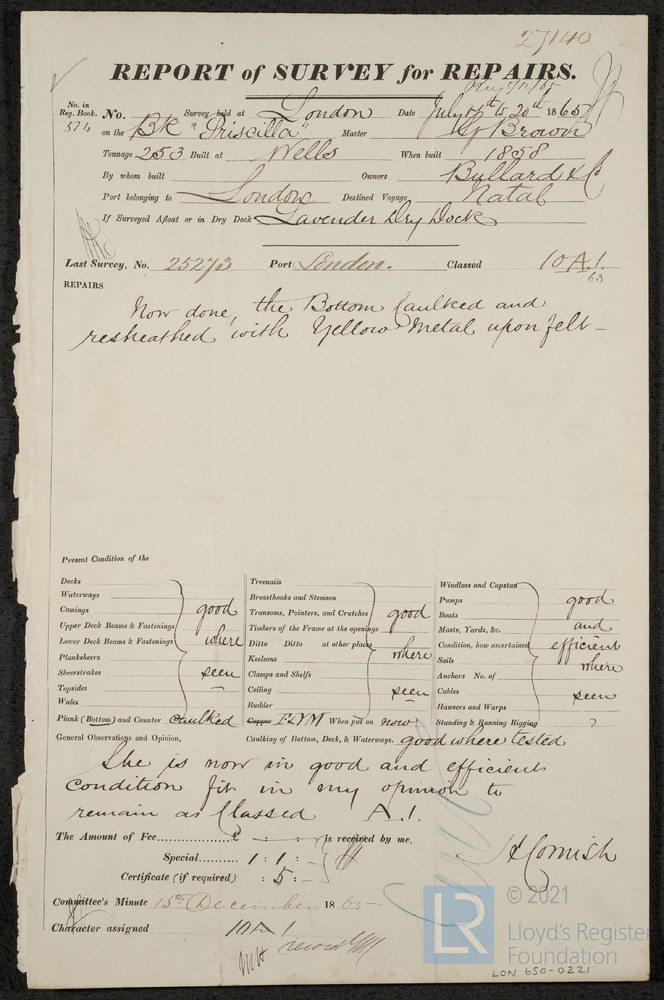 27140
REPORT of SURVEY for REPAIRS.
No. in Reg. Book. 574 No. Survey held at London Date July 17th to 20th 1865
on the BK "Priscilla" Master Brown
Tonnage 253 Built at Wells When built 1858
By whom built Owners Bullard & Co
Port belonging to London Destined Voyage Natal
If Surveyed Afloat or in Dry Dock Lavender Dry Dock
Last Survey, No. 25273 Port London. Classed 10 A.1. 63
REPAIRS
Now done, the Bottom Caulked and
resheathed with Yellow Metal upon felt –
Present Condition of the
Decks
Waterways
Comings
Upper Deck Beams & Fastenings
Lower Deck Beams & Fastenings
Planksheers
Sheerstrakes
Topsides
Wales
good where seen
Plank (Bottom) and Counter Caulked
Treenails
Breasthooks and Stemson
Transoms, Pointers, and Crutches
Timbers of the Frame at the openings
Ditto Ditto at other places
Keelsons
Clamps and Shelfs
Ceiling
Rudder
good where seen
Copper F&YM When put on now
Windlass and Capstan
Pumps
Boats
Masts, Yards, &c.
Condition, how ascertained
Sails
Anchors No. of
Cables
Hawsers and Warps
Standing & Running Rigging
good and efficient where seen
General Observations and Opinion, Caulking of Bottom, Deck, & Waterways. good where tested
She is now in good and efficient
condition fit in my opinion to
remain as Classed A.1.
The Amount of Fee £ - : - : is received by me,
Special 1 : 1 : -
Certificate (if required) : 5 : -
H Cornish
Committee's Minute 15th December 1865
Character assigned 10 A 1
record
© 2021
LR
Lloyd's Register
Foundation
LON 650-0221